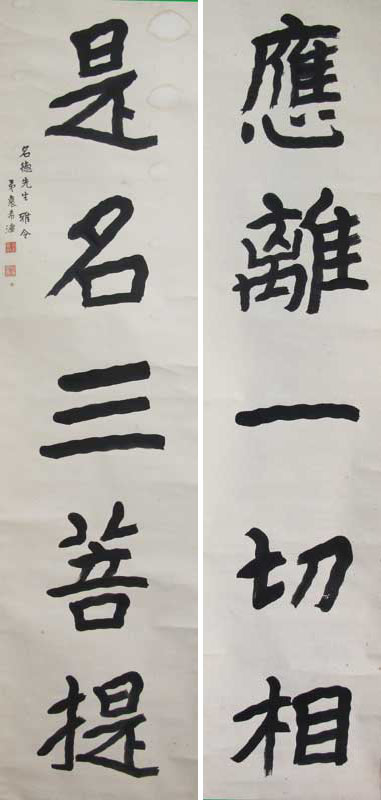 應離一切相
是名三菩提
名德先生雅令
弟袁希濂